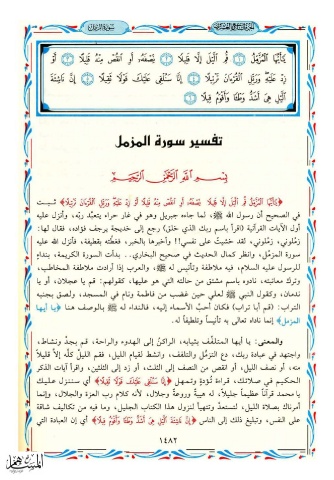 سورة المزمل
يَا أَيُّهَا الْمُزَّمِّلُ ۝١ قُمِ الَّيْلَ إِلَّا قَلِيلًا ۝٢ نِّصْفَهُ أَوِ انْقُصْ مِنْهُ قَلِيلًا ۝٣ أَوْ
زِدْ عَلَيْهِ وَرَتِّلِ الْقُرْآنَ تَرْتِيلًا ۝٤ إِنَّا سَنُلْقِي عَلَيْكَ قَوْلًا ثَقِيلًا ۝٥ إِنَّ نَاشِئَةَ
الَّيْلِ هِيَ أَشَدُّ وَطْئًا وَأَقْوَمُ قِيلًا ۝٦
تفسير سورة المزمل
بسم الله الرحمن الرحيم
﴿يَا أَيُّهَا الْمُزَّمِّلُ قُمِ الَّيْلَ إِلَّا قَلِيلًا نِّصْفَهُ أَوِ انْقُصْ مِنْهُ قَلِيلًا أَوْ زِدْ عَلَيْهِ وَرَتِّلِ الْقُرْآنَ تَرْتِيلًا﴾ ثبت
في الصحيح أن رسول الله ﷺ، لما جاءه جبريل وهو في غار حراء يتعبَّد ربه، وأنزل عليه
أول الآيات القرآنية (اقرأ باسم ربك الذي خلق) رجع إلى خديجة يرجف فؤاده، فقال لها:
زمِّلوني، زمِّلوني، لقد خشيت على نفسي!! وأخبرها بالخبر، فغطَّته بقطيفة، فأنزل الله عليه
سورة المزمل، وانظر كمال الحديث في صحيح البخاري.. بدأت السورة الكريمة، بنداءٍ
للرسول عليه السلام، فيه ملاطفة وتأنيس له ﷺ، والعرب إذا أرادت ملاطفة المخاطب،
وترك معاتبته، نادوه باسم مشتق من حالته التي هو عليها، كقولهم: قم يا عجلان، أو يا
ندمان، وكقول النبي ﷺ لعلي حين غضب من فاطمة ونام في المسجد، ولصق بجنبه
التراب: (قم أبا تراب) فكان أحبَّ الأسماء إليه، فالنداء له ﷺ بالوصف هنا ﴿يا أيها
المزمل﴾ إنما ناداه تعالى به تأنيساً وتلطيفاً له.
والمعنى: يا أيها المتلفِّف بثيابه، الراكن إلى الهدوء والراحة، قم بجدٍّ ونشاط،
واجتهد في عبادة ربك، دع التزمُّل والتلفف، وانشط لقيام الليل، فقم الليل كلَّه إلا قليلاً
منه، أو نصف الليل، أو انقص من النصف إلى الثلث، أو زد إلى الثلثين، واقرأ آيات الذكر
الحكيم في صلاتك، قراءة تؤدة وتمهل ﴿إِنَّا سَنُلْقِي عَلَيْكَ قَوْلًا ثَقِيلًا﴾ أي سننزل عليك
يا محمد قرآناً عظيماً جليلاً، له هيبةٌ وروعة وجلال، لأنه كلام رب العزة والجلال، وإنما
أمرناك بصلاة الليل، لتستعدَّ وتتهيأ لنزول هذا الكتاب الجليل، وما فيه من تكاليف شاقة
على النفس، وتبليغ ذلك إلى الناس ﴿إِنَّ نَاشِئَةَ الَّيْلِ هِيَ أَشَدُّ وَطْئًا وَأَقْوَمُ قِيلًا﴾ أي إن العبادة التي
١٤٨٢